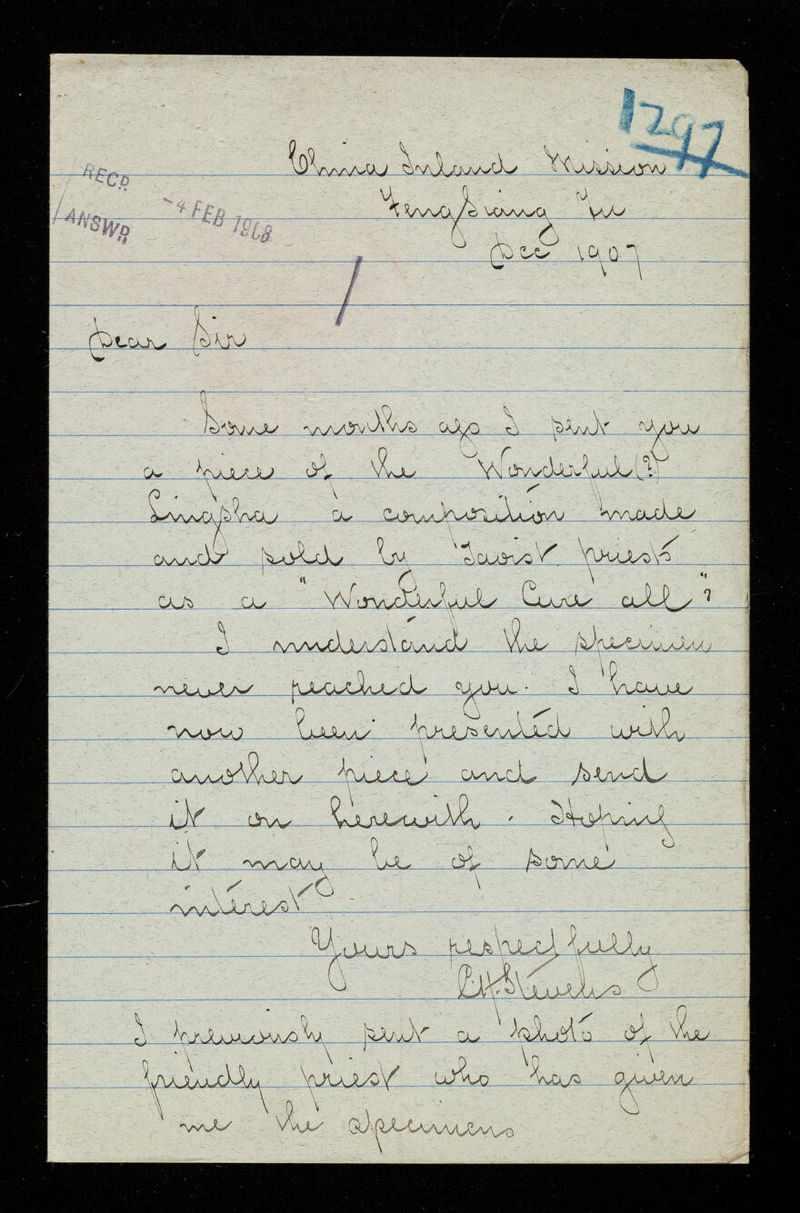 1297
China Inland Mission
RECD.
FengSiang Fu
-4 FEB 1908
ANSWD.
Dec 1907
Dear Sir
Some months ago I sent you
a piece of the Wonderful(?)
Lingsha a composition made
and sold by Taoist priests
as a "Wonderful Cure all"?
I understand the specimen
never reached you. I have
now been presented with
another piece and send
it on herewith. Hoping
it may be of some
interest
Yours respectfully
C.H. Stevens
I previously sent a photo of the
friendly priest who has given
me the specimens